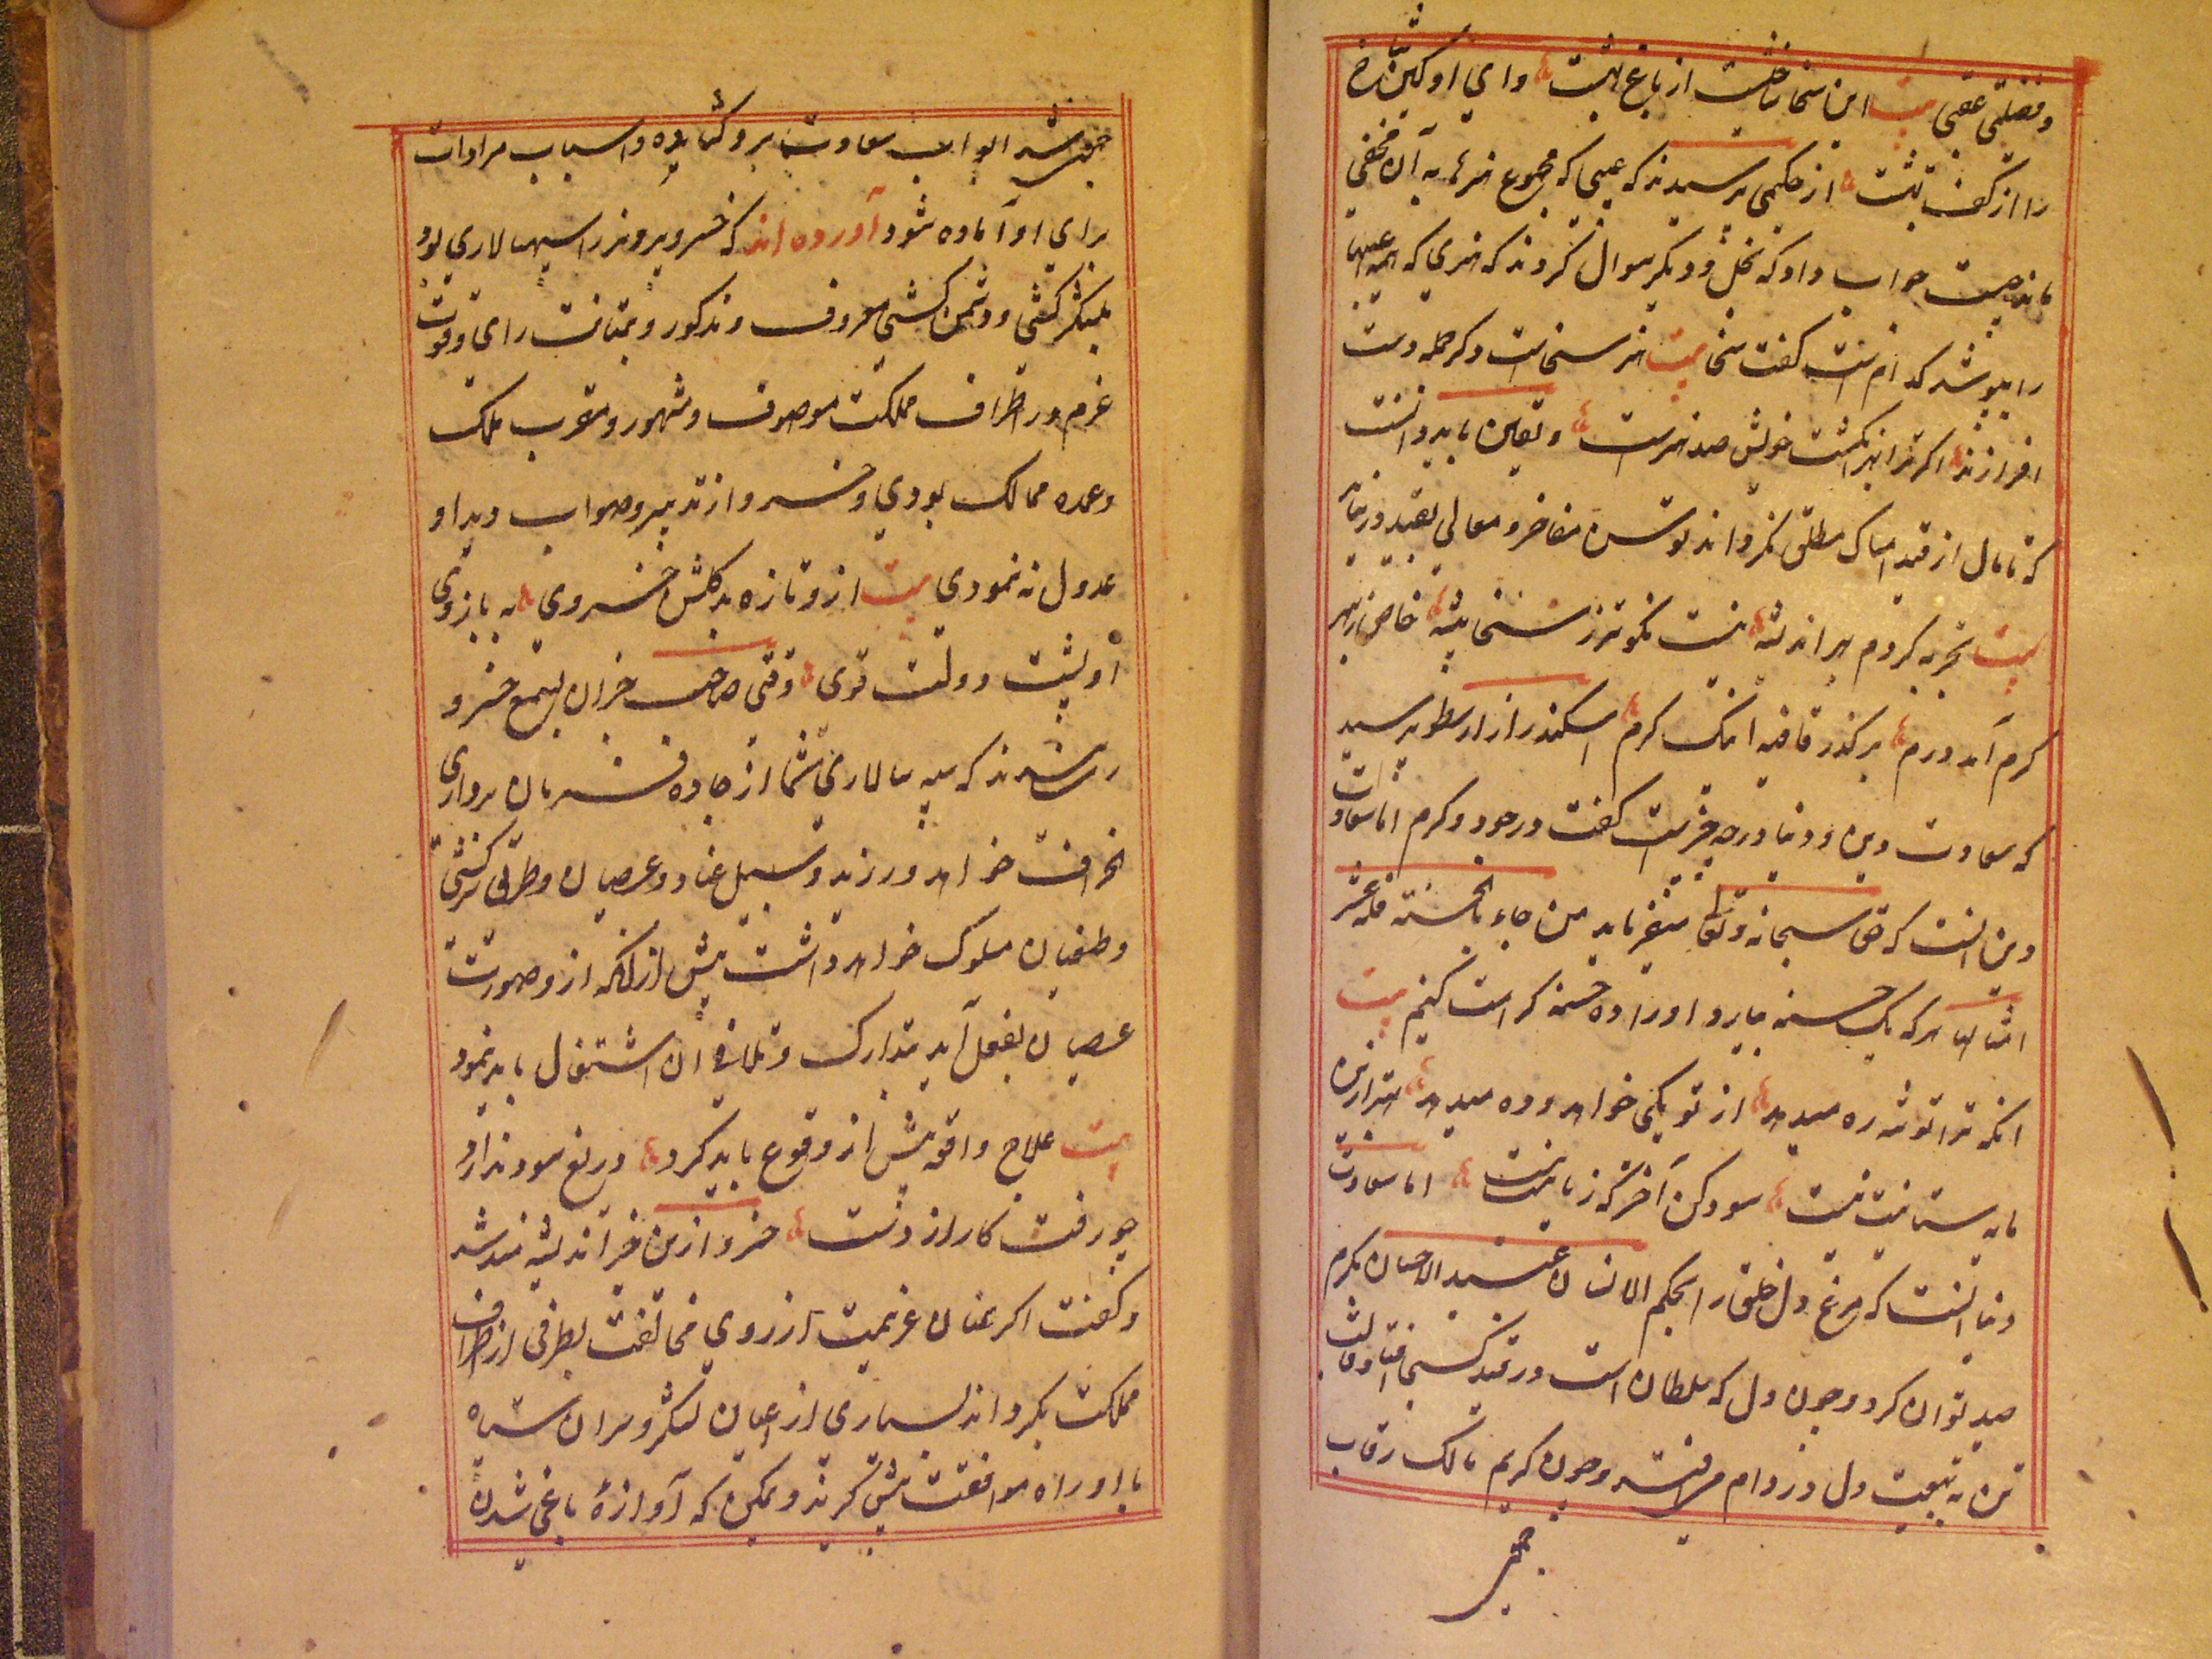 و فضلی عقبی بیت این سخا شاخیست از باغ بهشت وای او کین شاخ
را از کف بهشت از حکیمی پرسیدند که عیبی که مجموع هنرها به آن مخفی
ماند چیست جواب داد که بخل و دیگر سوال کردند که هنری که همه عیبها
را بپوشد کدام است گفت سخا بیت هنر سخاست و دگر جمله دست
افزارند اگر ترا بهر انگشت خویش صد هنرست و یقین باید دانست
که تا مال از قید امساک مطلق نگرداند توسن مفاخر و معالی بقید در نیاید
بیت تجربه کردم بهر اندیشه نیست نکوتر ز سخا پیشه خاص ز بهر
کرم آمد درم بر گذر قافیه اینک کرم اسکندر از ارسطو پرسید
که سعادت دین و دنیا در چه چیزست گفت در جود و کرم اما سعادت
دین آنست که حق سبحانه و تعالی میفرماید من جاء بالحسنة فله عشر
امثالها هر که یک حسنه بیارد او را ده حسنه کرامت کنیم بیت
انکه ترا توشه ره میدهد از تو یکی خواهد و ده میدهد بهتر ازین
مایه ستانیت نیست سود کن آخر که زیانیت نیست اما سعادت
دنیا آنست که مرغ دل خلق را بحکم الانسان عبید الاحسان بکرم
صید توان کرد و چون دل که سلطان است در قید کسی افتاد قالب
تن به تبعیت دل در دام مرافتد و چون کریم مالک رقاب
جمیع شد ابواب سعادت برو گشاده و اسباب مرادات
برای او آماده شود آورده اند که خسرو پرویز را سپهسالاری بود
بلشکر کشی و دشمن کشی معروف و مذکور و بمتانت رای و قوت
عزم در اطراف مملکت موصوف و مشهور و مقرب ملک
و عمده ممالک بودی و خسرو از تدبیر و صواب دید او
عدول نه نمودی بیت ازو تازه بد گلشن خسروی به بازوی
او پشت دولت قوی وقتی صاحب خبران بسمع خسرو
رسانیدند که سپه سالاری شما از جاده فرمان برداری
انحراف خواهد ورزید و سبیل عناد و عصیان و طریق سرکشی
و طغیان سلوک خواهد داشت پیش از انکه ازو صورت
عصیان بفعل آید بتدارک و تلافی ان اشتغال باید نمود
بیت علاج واقعه پیش از وقوع باید کرد دریغ سود ندارد
چو رفت کار از دست خسرو ازین خبر اندیشه مند شد
و گفت اگر عنان عزیمت از روی مخالفت بطرفی از اطراف
مملکت بگرداند بسیاری از اعیان لشکر و سران سپاه
با او راه موافقت پیش گیرند و یمکن که آوازهٔ باغی شدن